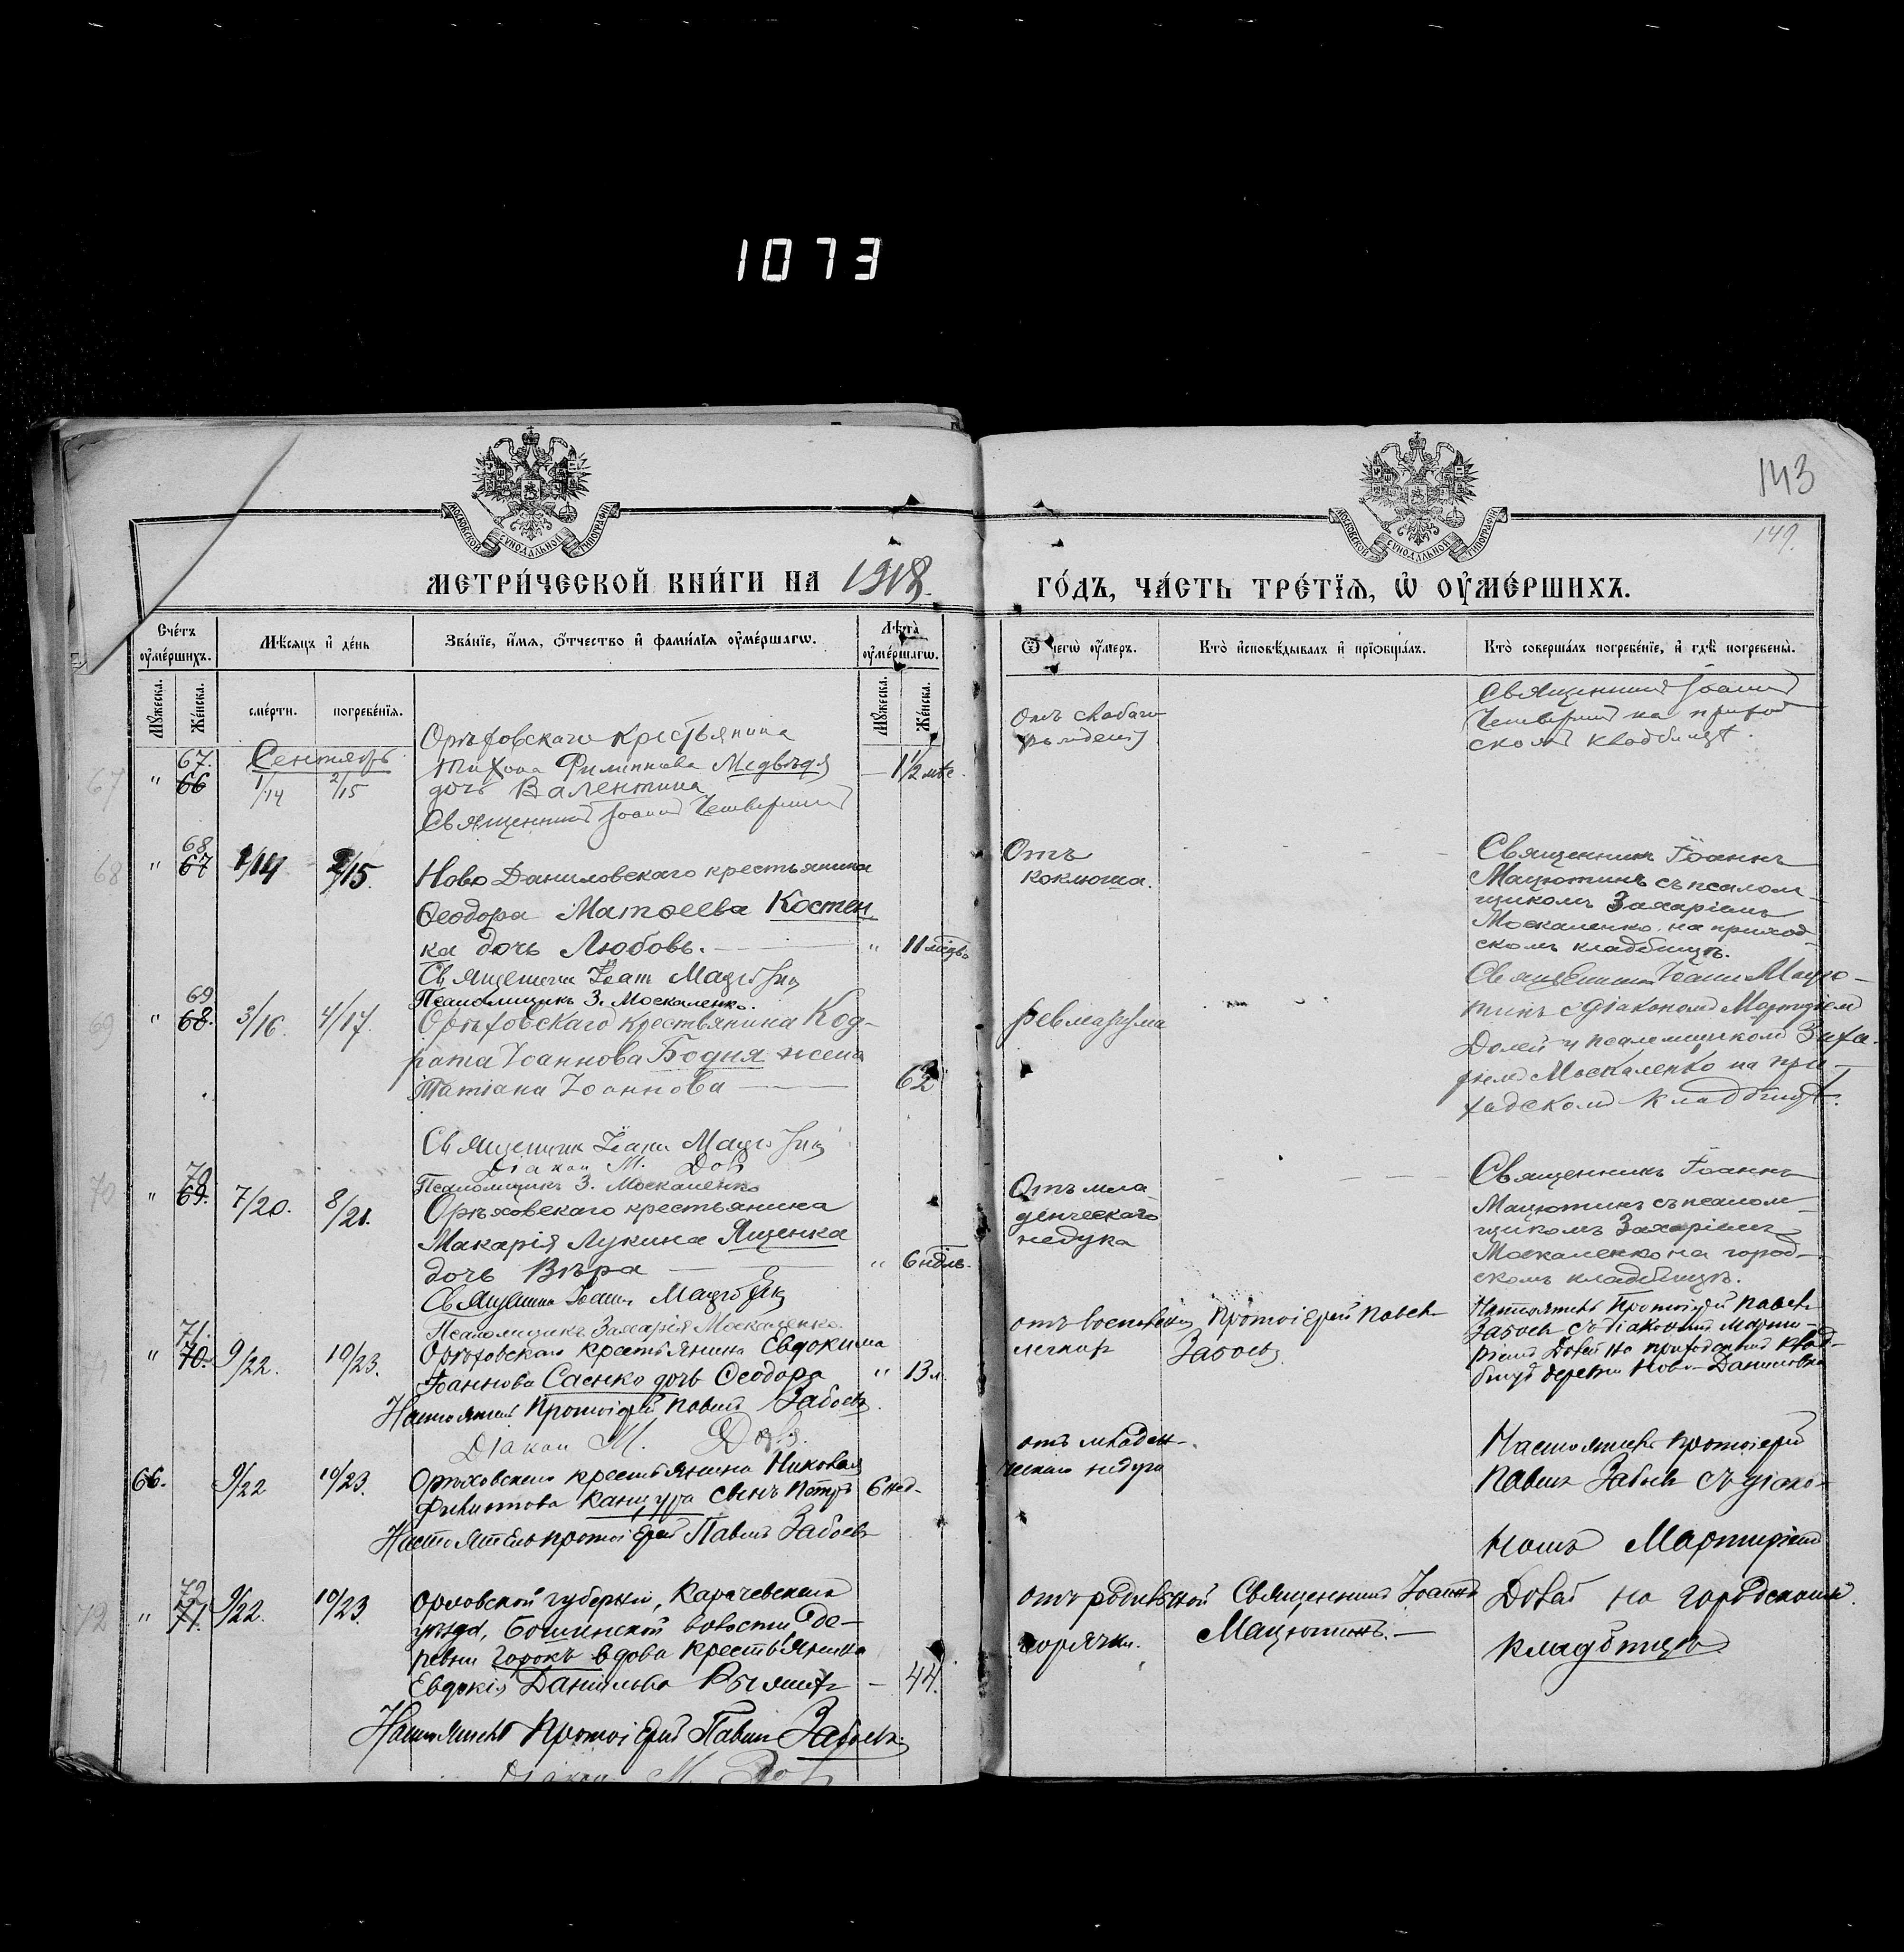 1073
143
149.
МОСКОВСКОЙ СѴНОДАЛЬНОЙ ТИПОГРАФІИ
МОСКОВСКОЙ СѴНОДАЛЬНОЙ ТИПОГРАФІИ
МЕТРИ́ЧЕСКОЙ КНИ́ГИ НА 1918.
ГО́ДЪ, ЧА́СТЬ ТРЕ́ТІѦ, Ѡ҆ ОУ҆МЕ́РШИХЪ.
Сче́тъ оу҆ме́ршихъ.
Мѣ́сяцъ и҆ де́нь
Зва́нїе, и҆́мя, ѻ҆́тчество и҆ фами́лїя оу҆ме́ршагѡ.
Лѣ́та оу҆ме́ршагѡ.
Ѿ чегѡ̀ оу҆́меръ.
Кто̀ и҆сповѣ́дывалъ и҆ прїѡбща́лъ.
Кто̀ соверша́лъ погребе́нїе, и҆ гдѣ̀ погребены̀.
Мꙋ́жеска.
Же́нска.
сме́рти.
погребе́нїя.
Мꙋ́жеска.
Же́нска.
Сентябрь
67 " 67. 66 1/14 2/15
Орѣховскаго крестьянина
Тихона Филиппова Медвѣдя — 1½ мѣс.
дочь Валентина
Священникъ Іоаннъ
Отъ слабаго
Священникъ Іоаннъ
на приход
скомъ кладбищѣ.
68 " 68 67 1/14 2/15.
Ново Даниловскаго крестьянина
Ѳеодора Матѳеева Костен
ка дочь Любовь. — " 11 мѣсъ
Священникъ Іоаннъ Мацютинъ
Псаломщикъ З. Москаленко.
Отъ
коклюша.
Священникъ Іоаннъ
Мацютинъ съ псалом
щикомъ Захаріемъ
Москаленко на приход
скомъ кладбищѣ.
69 " 69 68. 3/16. 4/17.
Орѣховскаго крестьянина Код-
рата Іоаннова Бодня жена
Татіана Іоаннова — 62
Священникъ Іоаннъ Мацютинъ
Діакон М. Довб
Псаломщикъ З. Москаленко
ревматизма
Священникъ Іоаннъ Мацю-
тинъ с діакономъ Мартиріем
и псаломщикомъ Заха-
ріемъ Москаленко на при-
ходскомъ кладбищѣ.
70 " 70 69. 7/20. 8/21.
Орѣховскаго крестьянина
Макарія Лукина Ященка
дочь Вѣра — " 6 ндль.
Священникъ Іоаннъ Мацютинъ
Псаломщикъ Захарія Москаленко.
Отъ мла
денческаго
недуга
Священникъ Іоаннъ
Мацютинъ съ псалом
щикомъ Захаріемъ
Москаленко на город-
скомъ кладбищѣ.
" 71. 70. 9/22. 10/23.
Орѣховскаго крестьянина Евдокима
Іоаннова Саенко дочь Ѳеодора " 13 л.
Настоятель Протоіерей Павелъ Забоевъ.
Діакон М.
отъ воспаленія
легкихъ
Протоіерей Павелъ
Забоевъ
Настоятель Протоіерей Павелъ
Забоевъ съ діакономъ Марти-
ріемъ на приходскомъ клад-
бищѣ деревни Ново-Даниловка
66. 9/22 10/23.
Орѣховскаго крестьянина Николая
Филиппова Канцура сынъ Петръ 6 нед.
Настоятель протоіерей Павелъ Забоевъ
отъ младен-
ческаго недуга
Настоятель протоіерей
Павелъ Забоевъ съ діако-
номъ Мартиріемъ
на городскомъ
кладбищѣ
72 " 72 71. 9/22. 10/23.
Орловской губерніи, Карачевскаго
уѣзда, Бошинской волости де-
ревни Горокъ вдова крестьянина
Евдокія Данилова — 44.
Настоятель Протоіерей Павелъ Забоевъ.
Діакон М.
отъ родильной
горячки.
Священникъ Іоаннъ
Мацютинъ. —